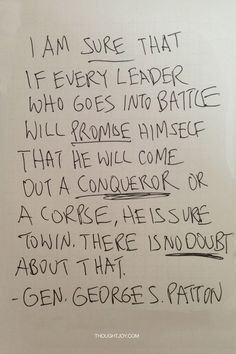 I AM SURE THAT
IF EVERY LEADER
WHO GOES INTO BATTLE
WILL PROMISE HIMSELF
THAT HE WILL COME
OUT A CONQUEROR OR
A CORPSE, HE IS SURE
TO WIN. THERE IS NO DOUBT
ABOUT THAT.
- GEN. GEORGE S. PATTON
THOUGHTJOY.COM